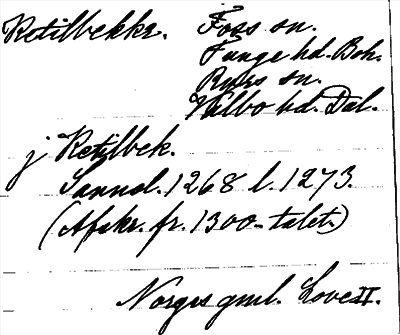 Ketilbekkr. Foss sn.
Tunge hd. Boh.
Rölers sn.
Valbo hd. Dal.
j Ketilbek.
Sannol. 1268 l. 1273.
(Afskr. fr. 1300-talet.)
Norges gml. Love II.